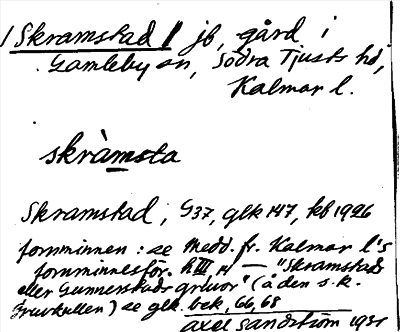 /Skramstad/ jb, gård i
Gamleby sn, Södra Tjusts hd,
Kalmar l.
skràmsta
Skramstad, G37, glk 147, kb 1926
fornminnen: se Medd. fr. Kalmar l:s
fornminnesför. h III, 14 — "Skramstads
eller Gunnerstads gruvor" (å den s.k.
Gruvkullen) se glk. bek, 66, 68
Axel Sandström 1931